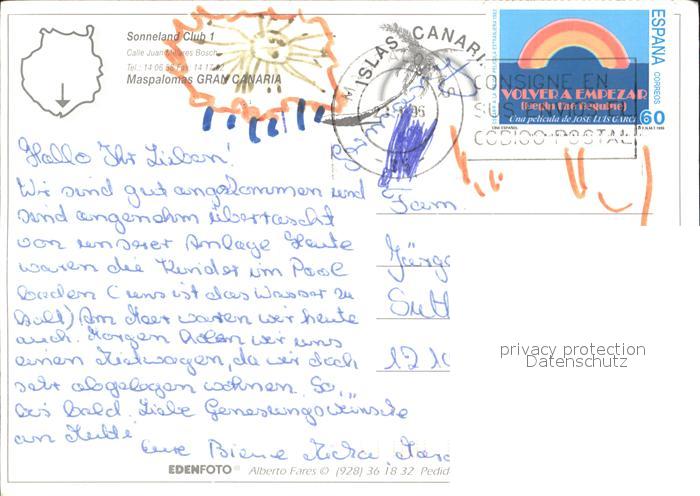 Sonneland Club 1
Calle Juan Millares Bosch
Tel.: 14 06 Fax 14 17
Maspalomas GRAN CANARIA
ISLAS CANARI
CONSIGNE EN
SUS
CODIGO POSTAL
VOLVER A EMPEZAR
(begin the beguine)
Una película de JOSE LUIS GARCI
CINE ESPAÑOL
ESPAÑA
CORREOS
60
Hallo Ihr Lieben!
Wir sind gut angekommen und
sind angenehm überrascht
von unserer Anlage Heute
waren die Kinder im Pool
baden (uns ist das Wasser zu
kalt) Am Meer waren wir heute
auch. Morgen holen wir uns
einen Mietwagen, da wir doch
sehr abgelegen wohnen. So,
bis bald. Liebe Genesungswünsche
an
eure Biene
Fam.
Jürg
Sutt
12 10
privacy protection
Datenschutz
EDENFOTO Alberto Fares © (928) 36 18 32 Pedid